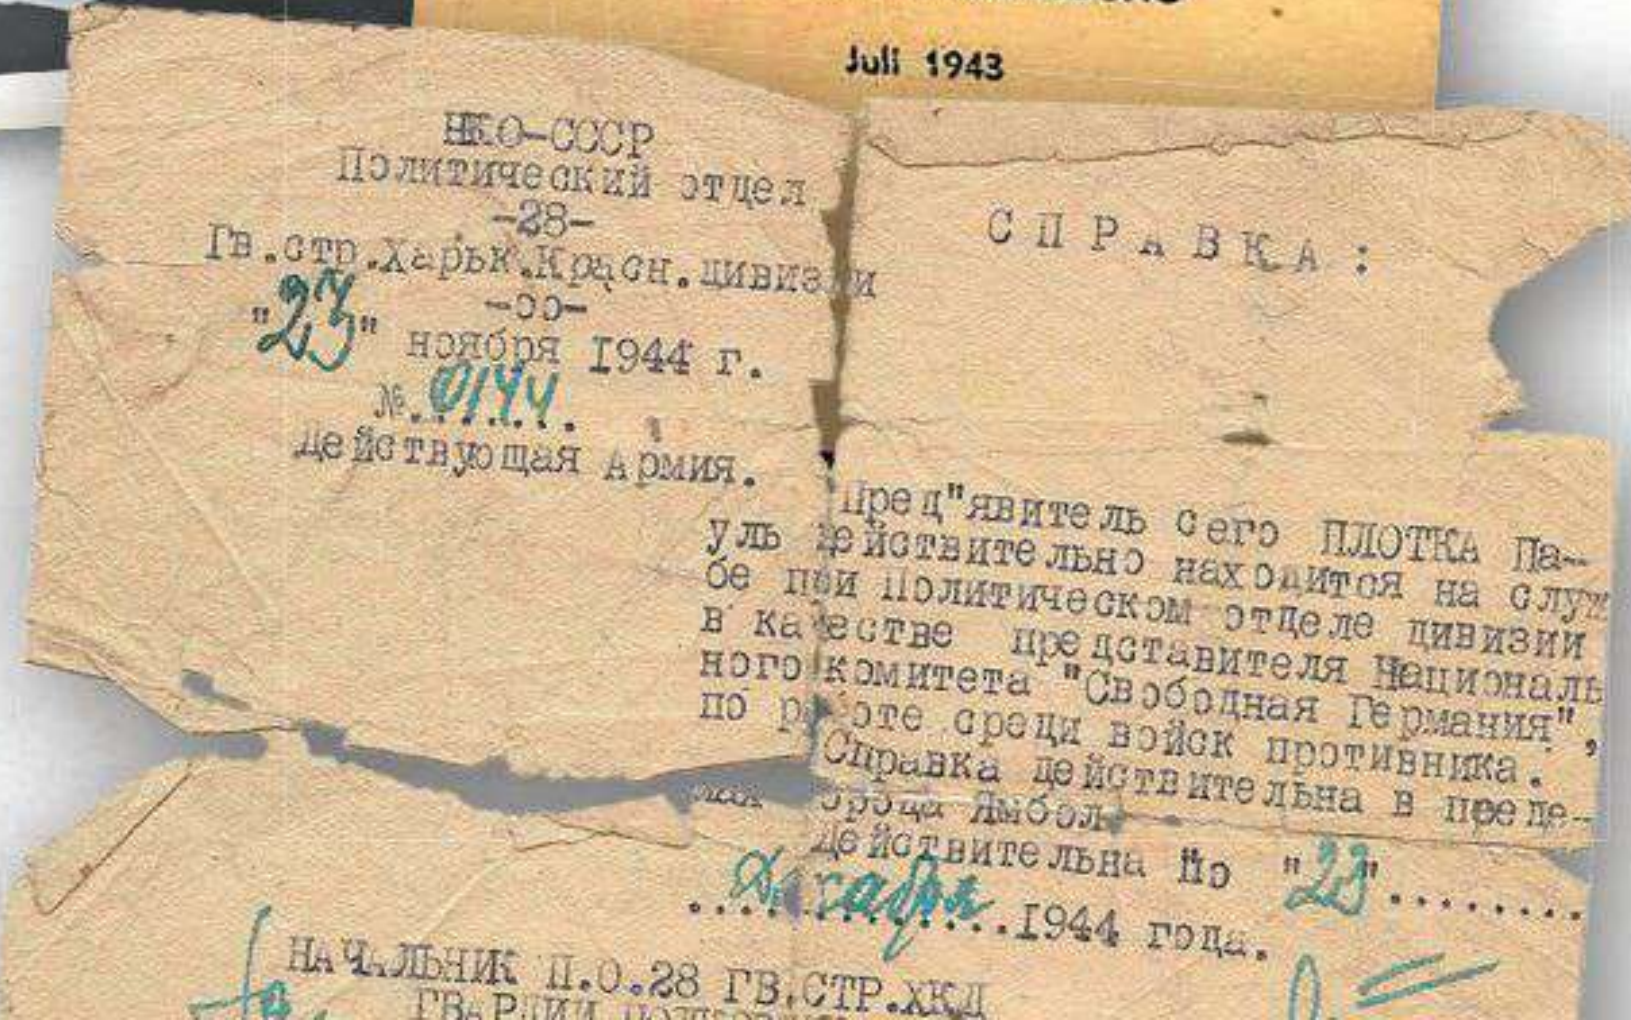 Juli 1943
НКО-СССР
Политический отдел
-28-
Гв.стр.Харьк.Красн.дивизии
-оо-
"23" ноября 1944 г.
№.0144
Действующая Армия.
СПРАВКА:
Пред"явитель сего ПЛОТКА Па-
уль действительно находится на служ
бе при Политическом отделе дивизии
в качестве представителя Националь
ного комитета "Свободная Германия",
по работе среди войск противника.
Справка действительна в преде-
лах города Ямбол.
Действительна по "23"........
декабря 1944 года.
НАЧАЛЬНИК П.О.28 ГВ.СТР.ХКД
ГВАРДИИ